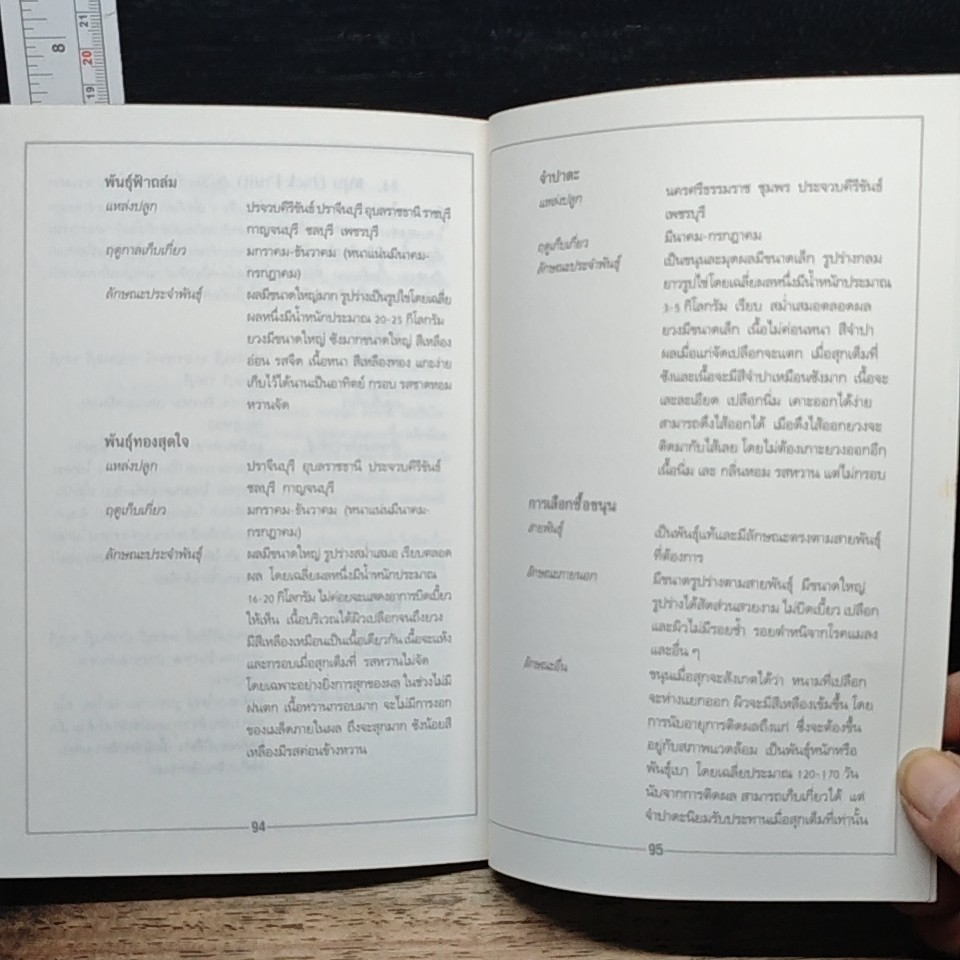 8
21
20
19
พันธุ์ฟ้าถล่ม
แหล่งปลูก ปรจวบคีรีขันธ์ ปราจีนบุรี อุบลราชธานี ราชบุรี
กาญจนบุรี ชลบุรี เพชรบุรี
ฤดูกาลเก็บเกี่ยว มกราคม-ธันวาคม (หนาแน่นมีนาคม-
กรกฎาคม)
ลักษณะประจำพันธุ์ ผลมีขนาดใหญ่มาก รูปร่างเป็นรูปไข่โดยเฉลี่ย
ผลหนึ่งมีน้ำหนักประมาณ 20-25 กิโลกรัม
ยวงมีขนาดใหญ่ ซังมากขนาดใหญ่ สีเหลือง
อ่อน รสจืด เนื้อหนา สีเหลืองทอง แกะง่าย
เก็บไว้ได้นานเป็นอาทิตย์ กรอบ รสชาดหอม
หวานจัด
พันธุ์ทองสุดใจ
แหล่งปลูก ปราจีนบุรี อุบลราชธานี ประจวบคีรีขันธ์
ชลบุรี กาญจนบุรี
ฤดูเก็บเกี่ยว มกราคม-ธันวาคม (หนาแน่นมีนาคม-
กรกฎาคม)
ลักษณะประจำพันธุ์ ผลมีขนาดใหญ่ รูปร่างสม่ำเสมอ เรียบตลอด
ผล โดยเฉลี่ยผลหนึ่งมีน้ำหนักประมาณ
16-20 กิโลกรัม ไม่ค่อยจะแสดงอาการบิดเบี้ยว
ให้เห็น เนื้อบริเวณใต้ผิวเปลือกจนถึงยวง
มีสีเหลืองเหมือนเป็นเนื้อเดียวกัน เนื้อจะแห้ง
และกรอบเมื่อสุกเต็มที่ รสหวานไม่จัด
โดยเฉพาะอย่างยิ่งการสุกของผล ในช่วงไม่มี
ฝนตก เนื้อหวานกรอบมาก จะไม่มีการงอก
ของเมล็ดภายในผล ถึงจะสุกมาก ซังน้อยสี
เหลืองมีรสค่อนข้างหวาน
94
จำปาดะ
แหล่งปลูก นครศรีธรรมราช ชุมพร ประจวบคีรีขันธ์
เพชรบุรี
ฤดูเก็บเกี่ยว มีนาคม-กรกฎาคม
ลักษณะประจำพันธุ์ เป็นขนุนละมุดผลมีขนาดเล็ก รูปร่างกลม
ยาวรูปไข่โดยเฉลี่ยผลหนึ่งมีน้ำหนักประมาณ
3-5 กิโลกรัม เรียบ สม่ำเสมอตลอดผล
ยวงมีขนาดเล็ก เนื้อไม่ค่อนหนา สีจำปา
ผลเมื่อแก่จัดเปลือกจะแตก เมื่อสุกเต็มที่
ซังและเนื้อจะมีสีจำปาเหมือนซังมาก เนื้อจะ
เละละเอียด เปลือกนิ่ม เคาะออกได้ง่าย
สามารถดึงไส้ออกได้ เมื่อดึงไส้ออกยวงจะ
ติดมากับไส้เลย โดยไม่ต้องเกาะยวงออกอีก
เนื้อนิ่ม และ กลิ่นหอม รสหวาน แต่ไม่กรอบ
การเลือกซื้อขนุน
สายพันธุ์ เป็นพันธุ์แท้และมีลักษณะตรงตามสายพันธุ์
ที่ต้องการ
ลักษณะภายนอก มีขนาดรูปร่างตามสายพันธุ์ มีขนาดใหญ่
รูปร่างได้สัดส่วนสวยงาม ไม่บิดเบี้ยว เปลือก
และผิวไม่มีรอยช้ำ รอยตำหนิจากโรคแมลง
และอื่น ๆ
ลักษณะอื่น ขนุนเมื่อสุกจะสังเกตได้ว่า หนามที่เปลือก
จะห่างแยกออก ผิวจะมีสีเหลืองเข้มขึ้น โดย
การนับอายุการติดผลถึงแก่ ซึ่งจะต้องขึ้น
อยู่กับสภาพแวดล้อม เป็นพันธุ์หนักหรือ
พันธุ์เบา โดยเฉลี่ยประมาณ 120-170 วัน
นับจากการติดผล สามารถเก็บเกี่ยวได้ แต่
จำปาดะนิยมรับประทานเมื่อสุกเต็มที่เท่านั้น
95